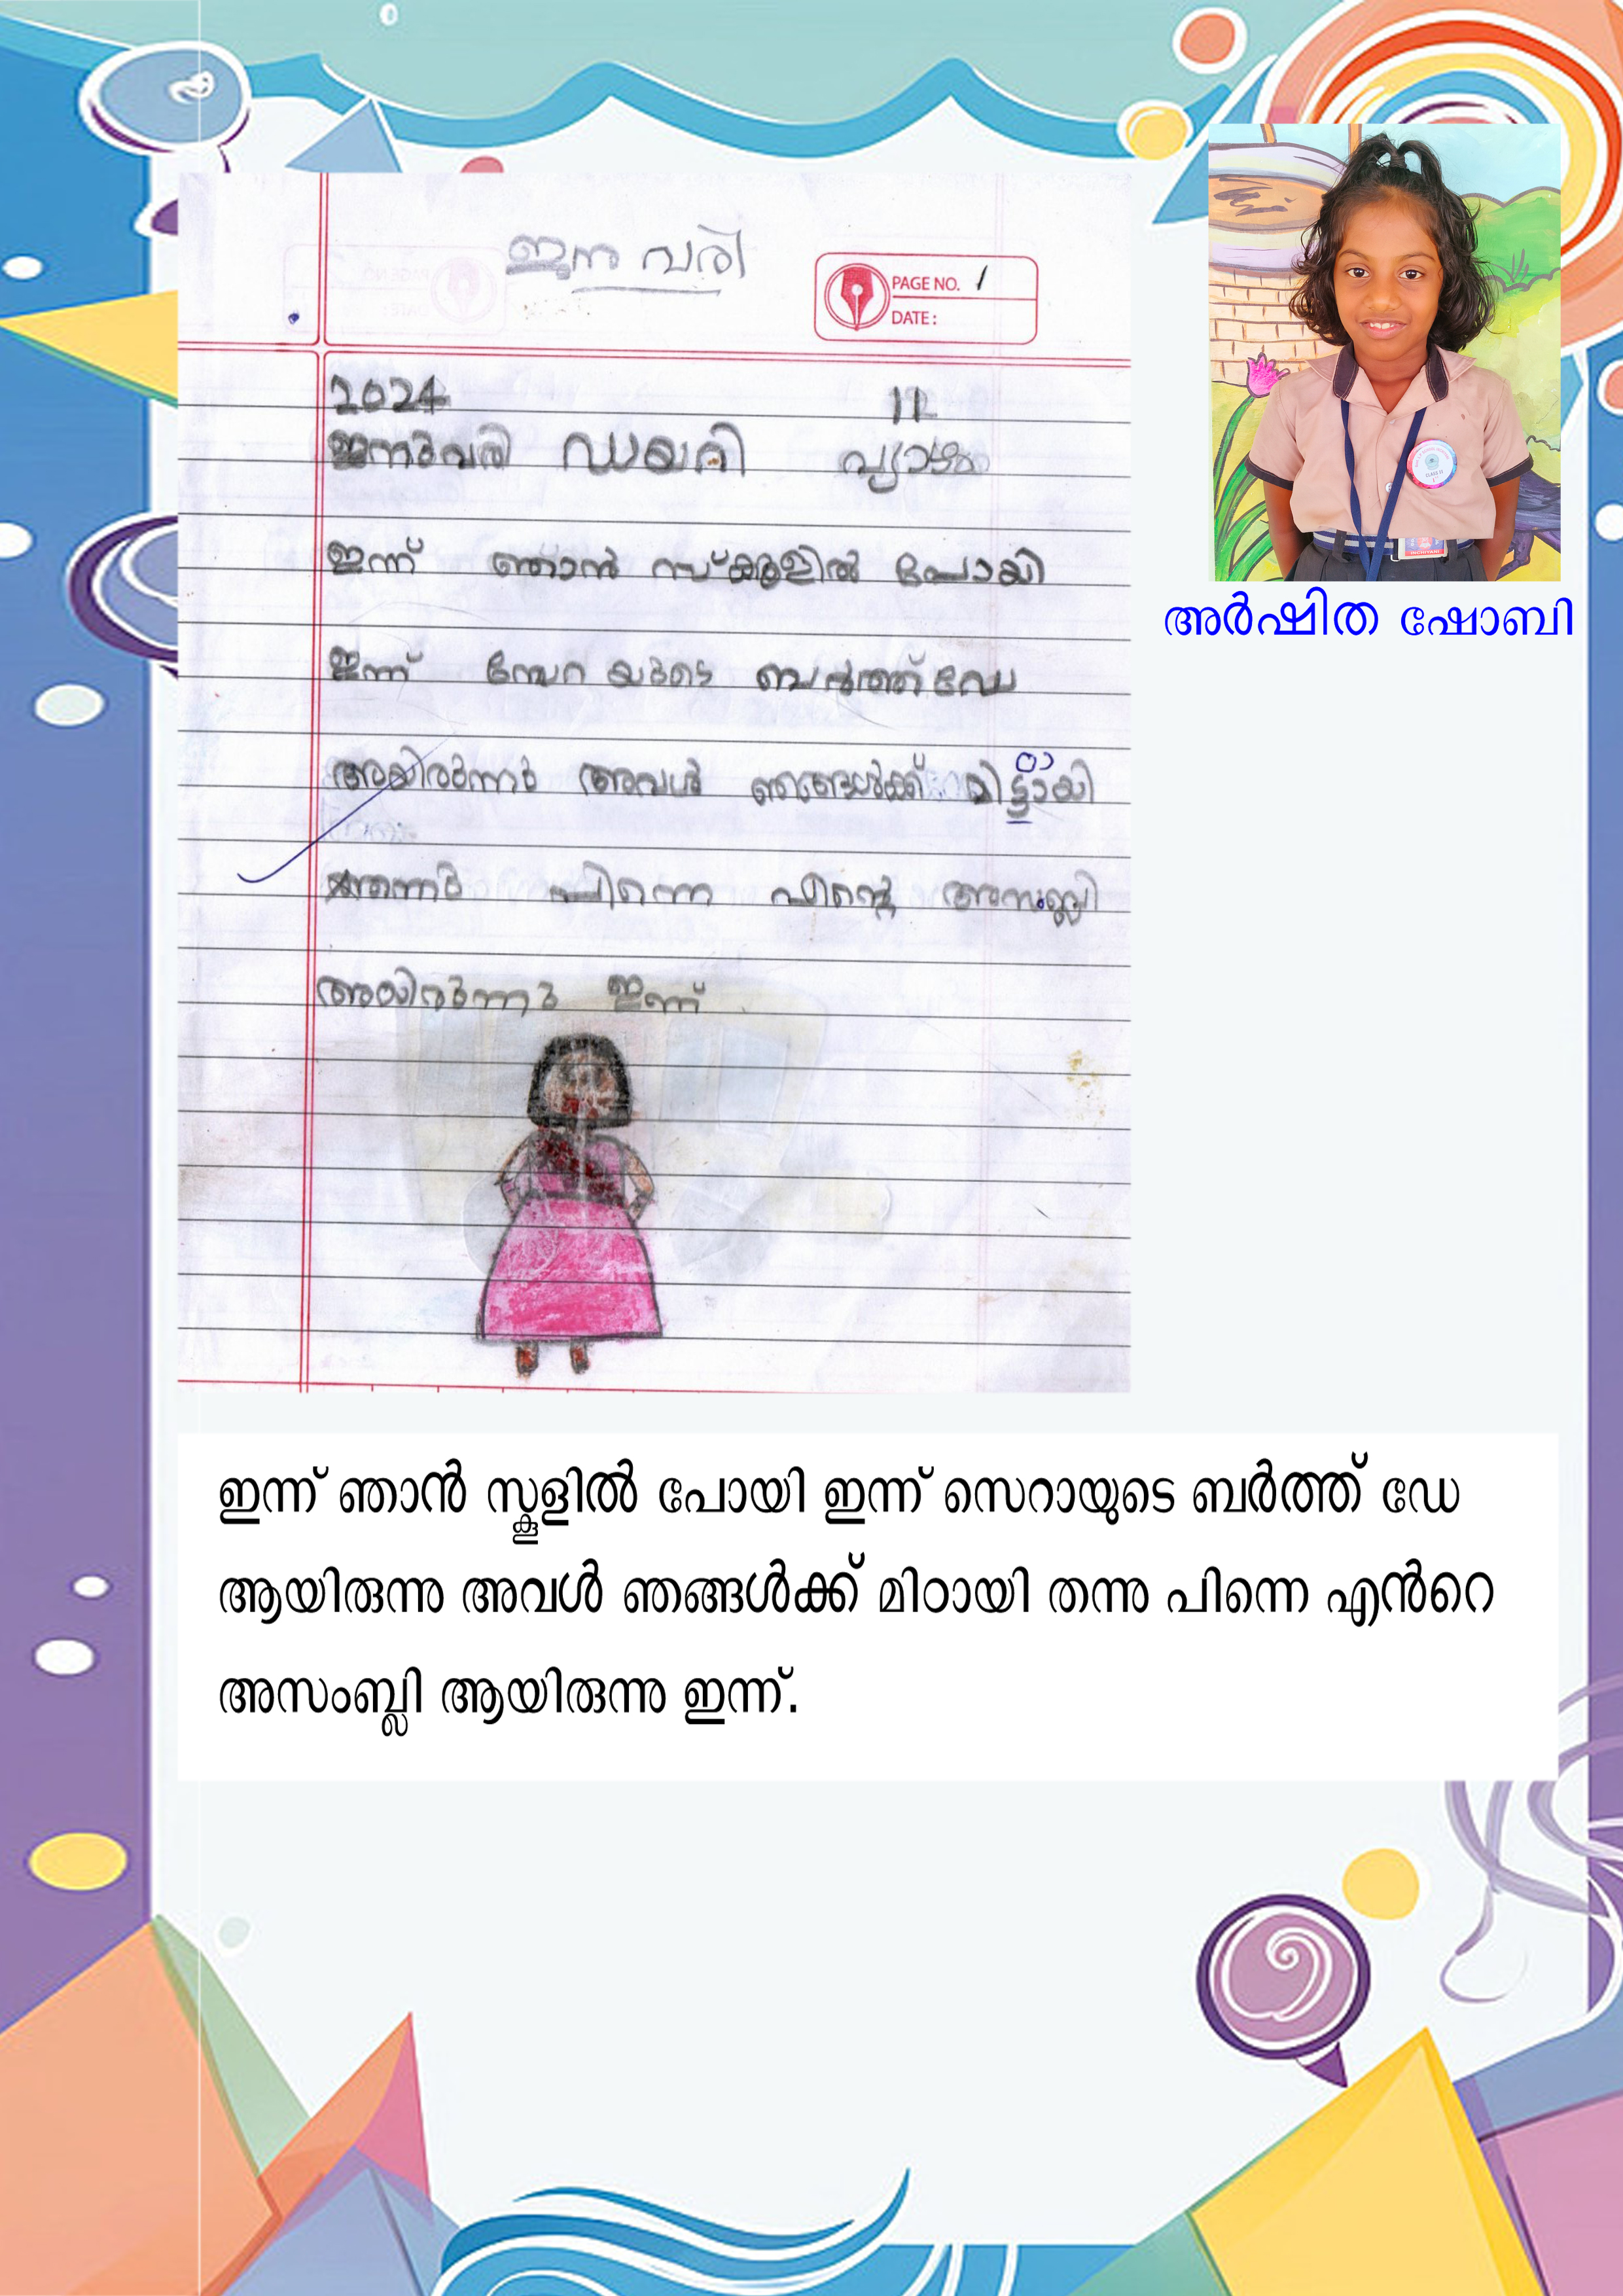 ഇനു വരി
PAGE NO. 1
DATE:
2024 11
ജനുവരി ഡയറി വ്യാഴം
ഇന്ന് ഞാൻ സ്ക്കൂളിൽ പോയി
ഇന്ന് യുടെ ബർത്ത് ഡേ
അയിരുന്നു അവൾ ഞങ്ങൾക്ക് മിട്ടായി
ഠാ
തന്നു പിന്നെ എന്റെ അസംബ്ലി
അയിരുന്നു ഇന്ന്
അർഷിത ഷോബി
ഇന്ന് ഞാൻ സ്കൂളിൽ പോയി ഇന്ന് സെറായുടെ ബർത്ത് ഡേ
ആയിരുന്നു അവൾ ഞങ്ങൾക്ക് മിഠായി തന്നു പിന്നെ എൻറെ
അസംബ്ലി ആയിരുന്നു ഇന്ന്.